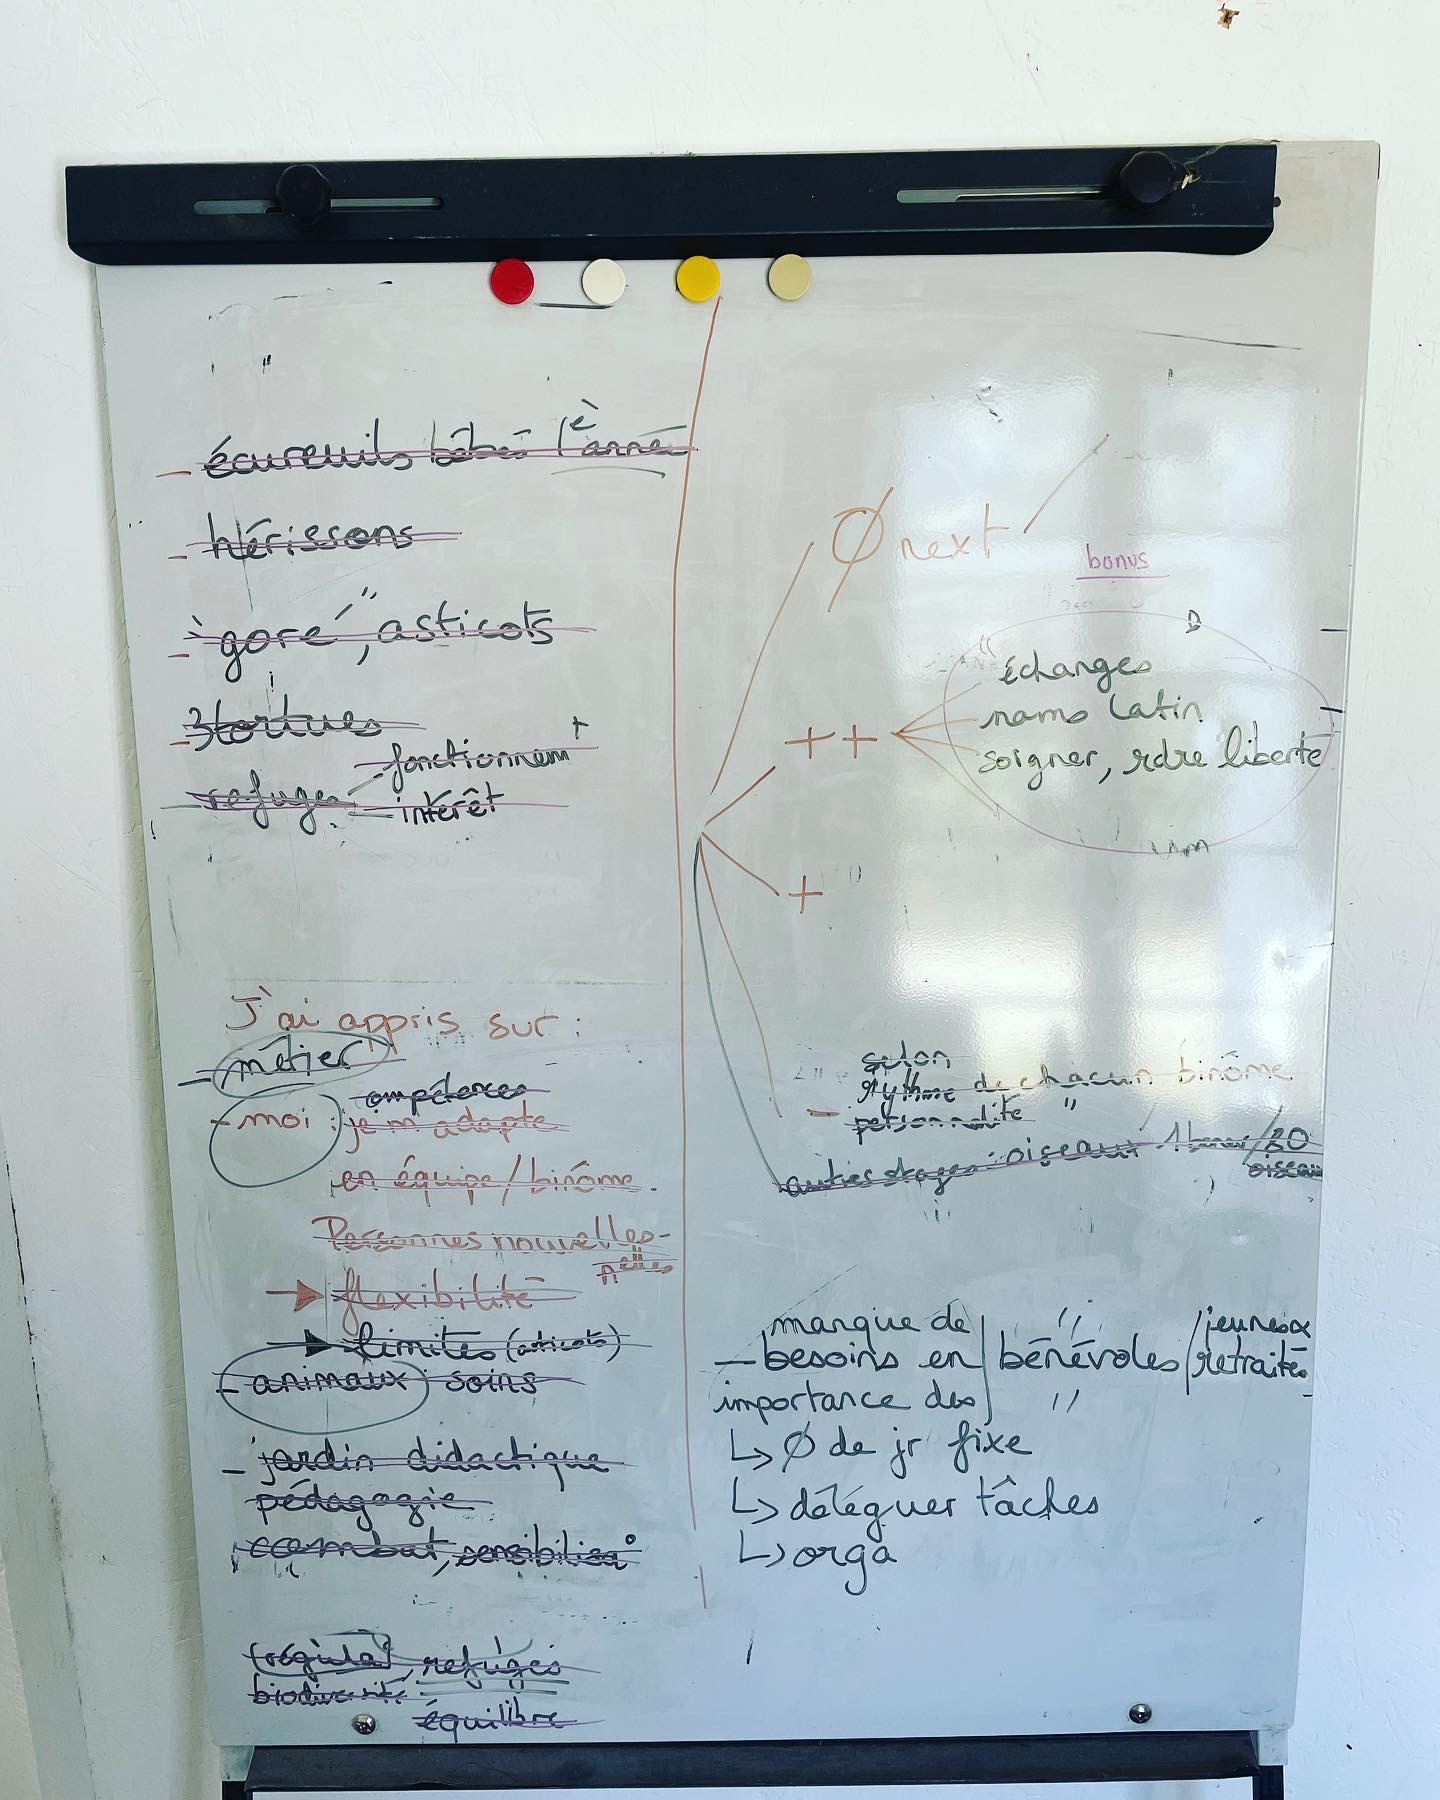 - écureuils bébés l'année
- hérissons
- "gore", asticots
- 3 tortues
refuges
fonctionnemt
intérêt
J'ai appris sur :
- métier
compétences
- moi : je m'adapte
en équipe / binôme
Personnes nouvelles -
→ flexibilité
→ limites (asticots)
- animaux soins
- jardin didactique
pédagogie
combat, sensibilisa°
régula°, refuges
biodiversité
équilibre
Ø next
bonus
++
échanges
noms latin
soigner, rdre liberté
+
- selon
rythme de chacun binôme
personnalité "
autres stages : oiseaux 20
oiseaux
manque de
- besoins en bénévoles / jeunes &
retraités
importance des
↳ Ø de jr fixe
↳ déléguer tâches
↳ orga